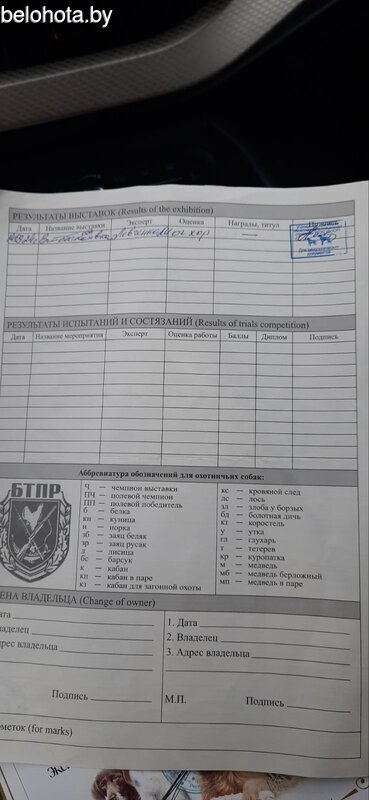 belohota.by
РЕЗУЛЬТАТЫ ВЫСТАВОК (Results of the exhibition)
Дата Название выставки Эксперт Оценка Награды, титул Подпись
оч. хор —
РЕЗУЛЬТАТЫ ИСПЫТАНИЙ И СОСТЯЗАНИЙ (Results of trials competition)
Дата Название мероприятия Эксперт Оценка работы Баллы Диплом Подпись
Аббревиатура обозначений для охотничьих собак:
БТПР
Ч — чемпион выставки
ПЧ — полевой чемпион
ПП — полевой победитель
б — белка
кн — куница
н — норка
зб — заяц беляк
зр — заяц русак
л — лисица
бс — барсук
к — кабан
кп — кабан в паре
кз — кабан для загонной охоты
кс — кровяной след
лс — лось
зл — злоба у борзых
бд — болотная дичь
кт — коростель
у — утка
гл — глухарь
т — тетерев
кр — куропатка
м — медведь
мб — медведь берложный
мп — медведь в паре
ЕНА ВЛАДЕЛЬЦА (Change of owner)
ата
аделец
рес владельца
Подпись
1. Дата
2. Владелец
3. Адрес владельца
М.П. Подпись
ометок (for marks)